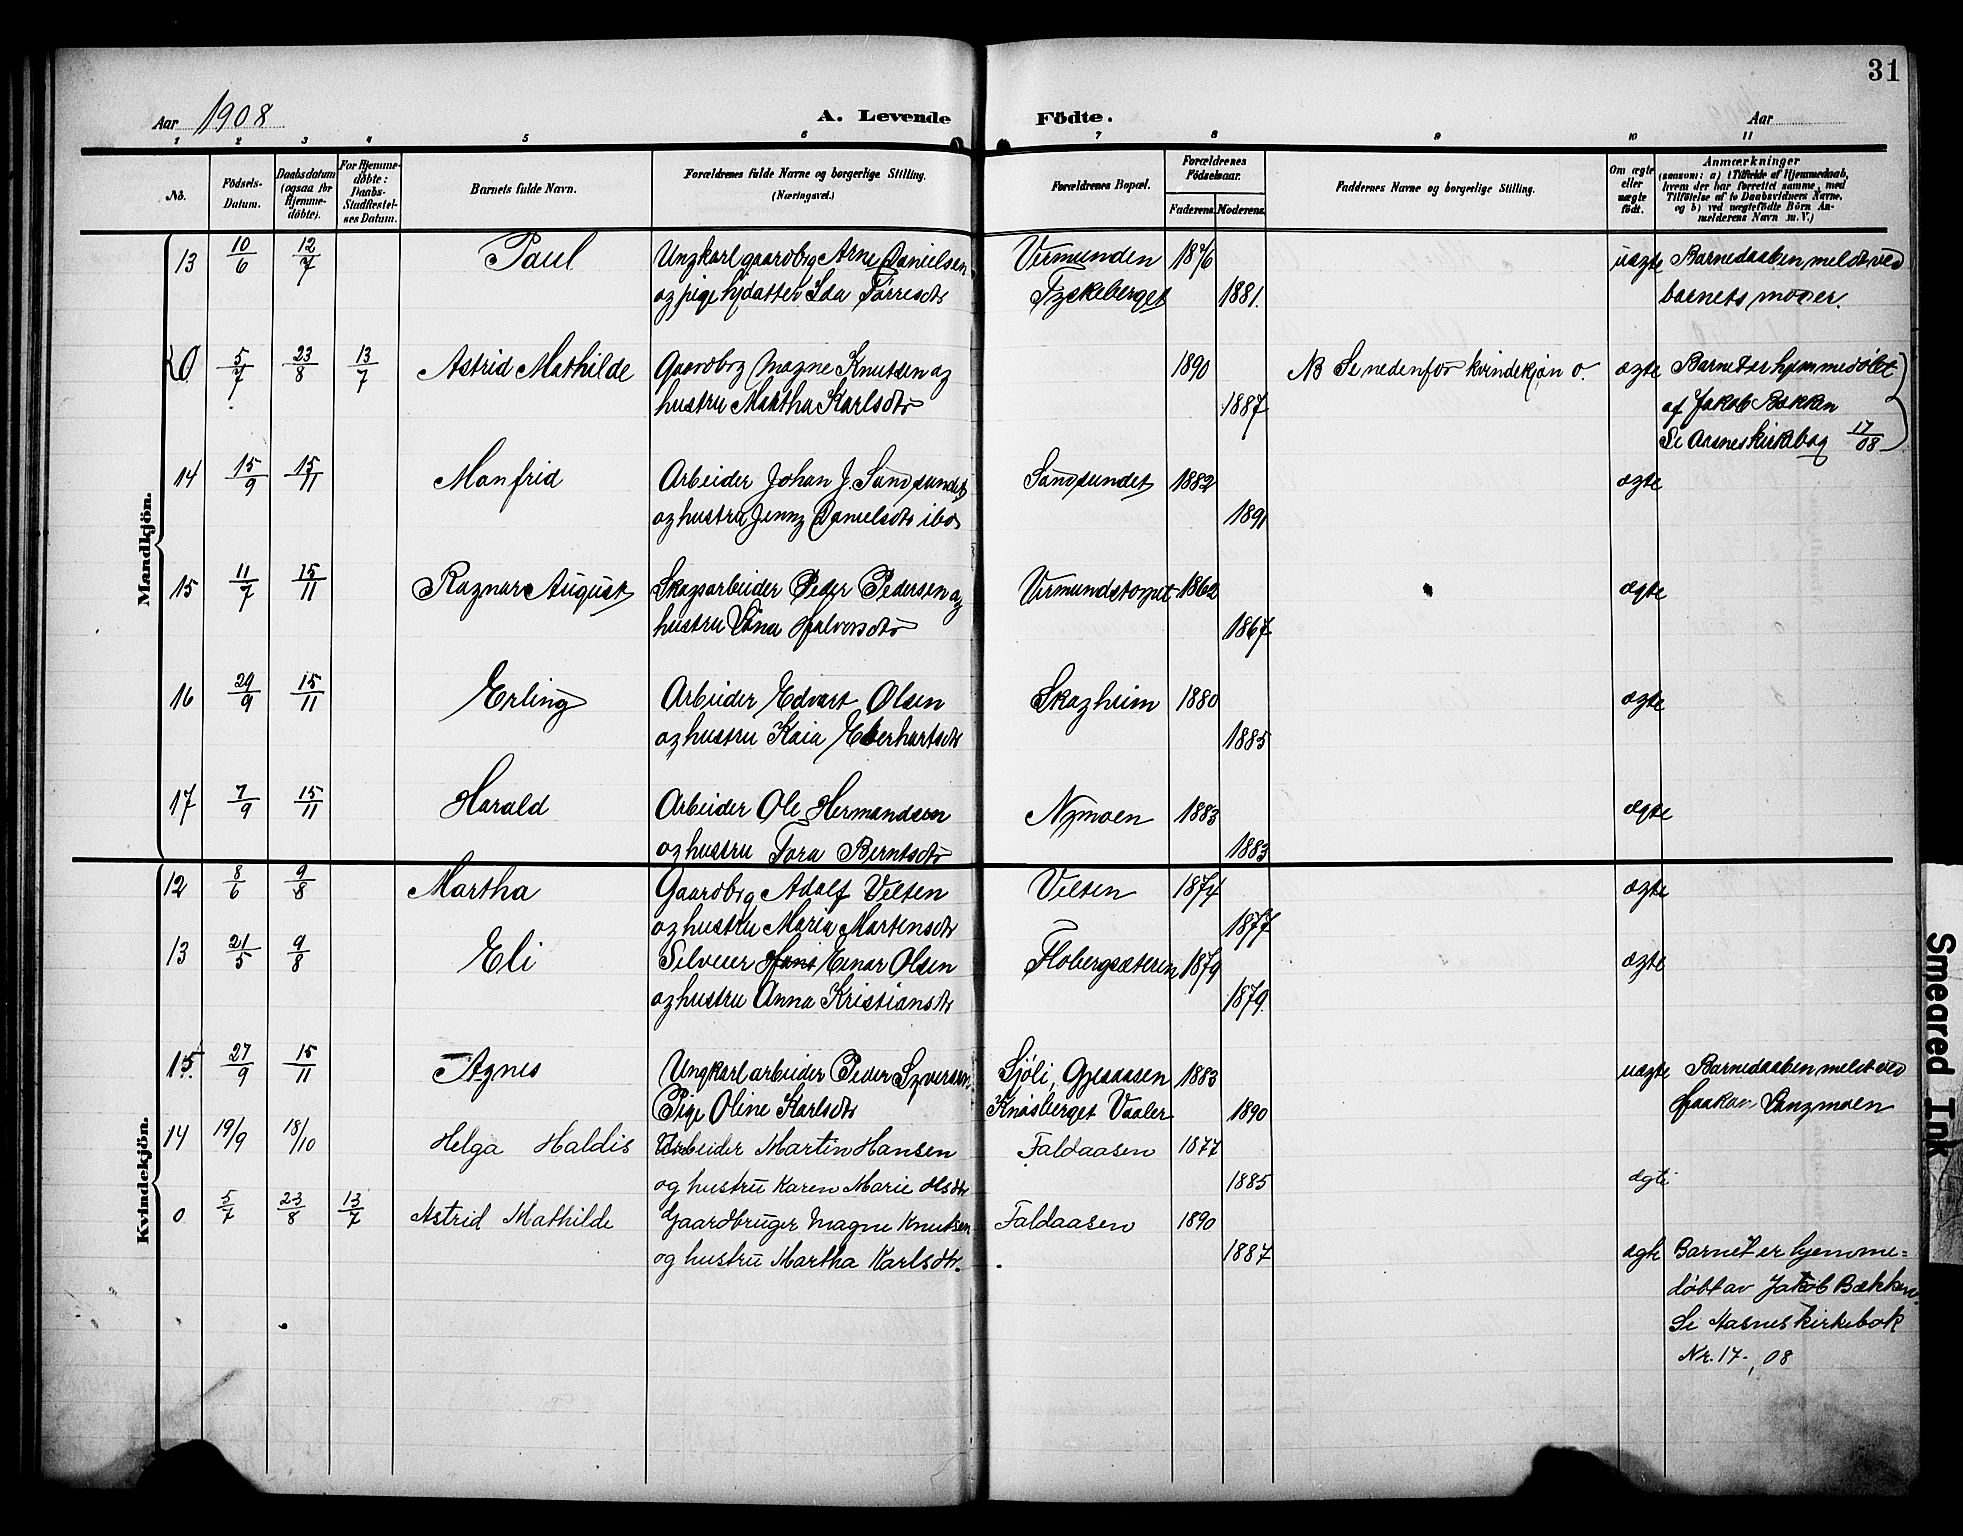 31
Aar 1908 A. Levende Födte. Aar
1 2 3 4 5 6 7 8 9 10 11
No. Födsels-Datum. Daabsdatum (ogsaa for Hjemme-döbte). For Hjemme-döbte: Daabs-Stadfæstel-ses Datum. Barnets fulde Navn. Forældrenes fulde Navne og borgerlige Stilling. (Næringsvei.) Forældrenes Bopæl. Forældrenes Födselsaar. Faderens. Moderens. Faddernes Navne og borgerlige Stilling. Om ægte eller uægte födt. Anmærkninger (saasom: a) i Tilfælde af Hjemmedaab, hvem der har forrettet samme, med Tilföielse af to Daabsvidners Navne, og b) ved uægtefödte Börn An-melderens Navn m. V.)
Mandkjön.
13 10/6 12/7 Paul Ungkarl gaardbrg Arne Danielsen Vermunden 1876 uægte Barnedaaben meldt ved
og pige hjdatter Ida Tørresdtr Tyskeberget 1881. barnets moder.
0 5/7 23/8 13/7 Astrid Mathilde Gaardbrg Magne Knutsen og 1890 NB Se nedenfor kvindekjøn 0. ægte Barnet er hjemmedøbt
hustru Martha Karlsdtr 1887 af Jakob Bækken
Se Aasnes kirkebog 17/08
14 15/9 15/11 Manfrid Arbeider Johan J. Sundsundet Sundsundet 1882 ægte
og hustru Jenny Danielsdtr ibd 1891
15 11/7 15/11 Ragnar August Skogsarbeider Peder Pedersen og Vermundstorpet 1862 ægte
hustru Lina Halvorsdtr 1867
16 29/9 15/11 Erling Arbeider Edvart Olsen Skogheim 1880 ægte
og hustru Kaia Eberhartsdtr 1885
17 7/9 15/11 Harald Arbeider Ole Hermandsen Nymoen 1883 ægte
og hustru Tora Berntsdtr 1883
Kvindekjön.
12 8/6 9/8 Martha Gaardbrg Adolf Velten Velten 1874 ægte
og hustru Maria Martensdtr 1877
13 21/5 9/8 Eli Selveier Hans Einar Olsen Flobergsæteren 1879 ægte
og hustru Anna Kristiansdtr 1879.
15. 27/9 15/11 Agnes Ungkarl arbeider Peder Syversen Sjöli, Gjesaasen 1883 uægte Barnedaaben meldt ved
Pige Oline Karlsdtr Knøsberget Vaaler 1890 Haakon Langmoen
14 19/9 18/10 Helga Haldis Arbeider Martin Hansen Faldaasen 1877
og hustru Karen Marie Olsdtr 1885 ægte
0 5/7 23/8 13/7 Astrid Mathilde Gaardbruger Magne Knutsen Faldaasen 1890
og hustru Martha Karlsdtr. 1887 ægte Barnet er hjemme=
døbt av Jakob Bækken.
Se Aasnes kirkebok
Nr. 17., 08
Smeared Ink